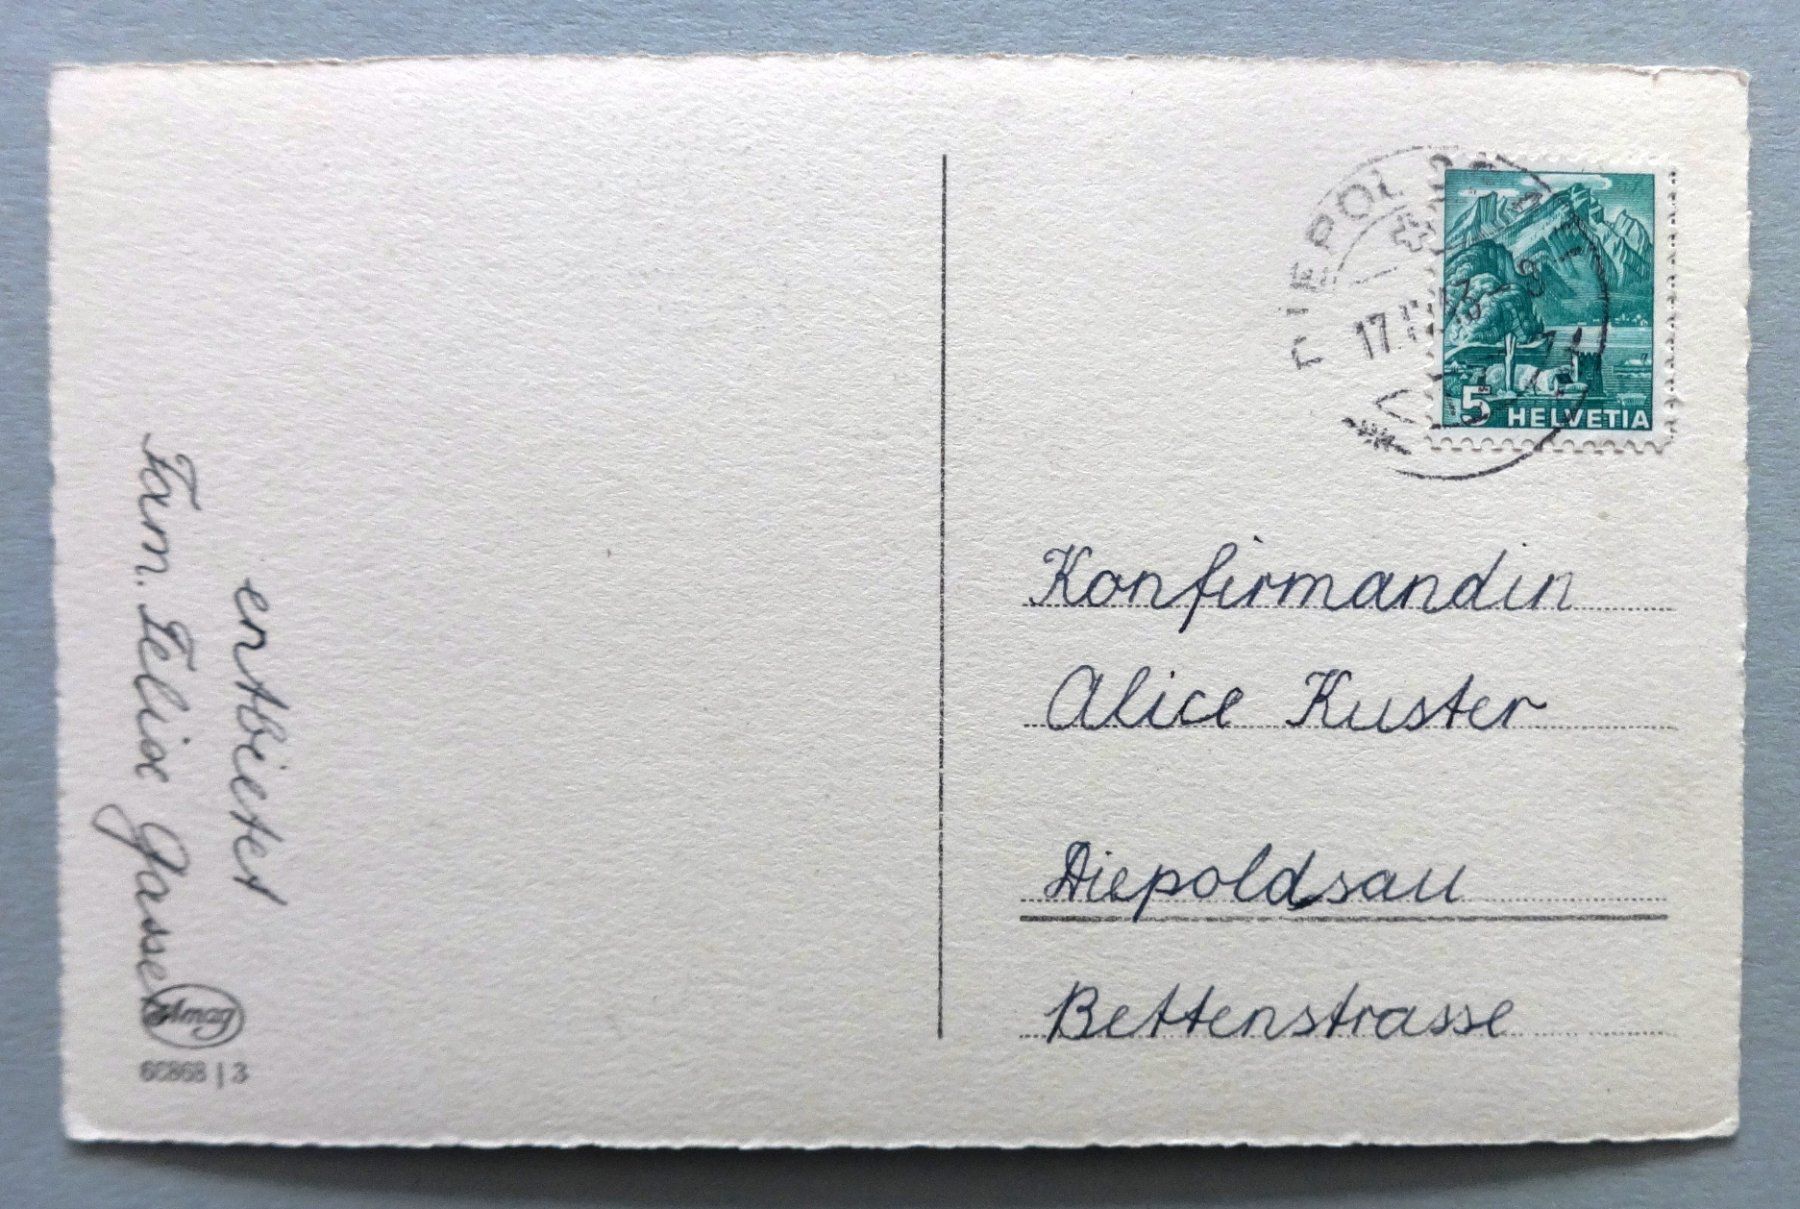 entbietet
Fam. Felix Gasser
Amag
DIEPOLDSAU
17.
5
HELVETIA
Konfirmandin
Alice Kuster
Diepoldsau
Bettenstrasse